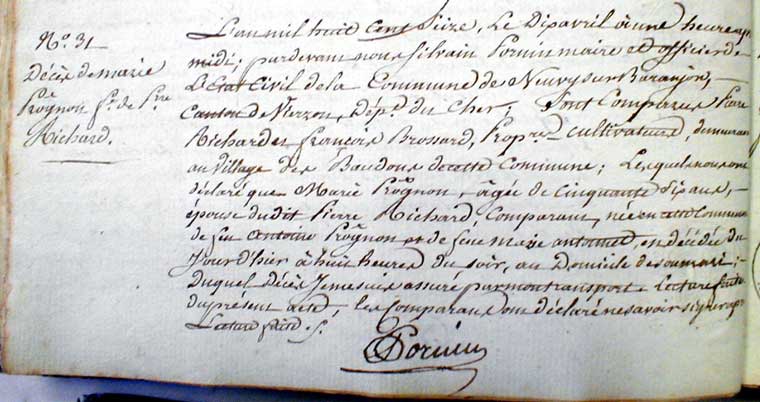 N.º 31
Décès de marie
Prognon f.e de P.re
Richard.
L'an mil huit cent Seize, Le Dix avril à une heure apr
midi; pardevant nous Silvain Fornin maire et officier de
L'Etat Civil de la Commune de Neuvy sur Baranjon,
Canton de Vierzon, Dép.t du Cher; Sont Comparus Pierre
Richard et françois Brossard, Propr.es Cultivateurs, demeurant
au village des Baudons de cette Commune; Lesquels nous ont
déclaré que Marie Prognon, agée de Cinquante Six ans,
épouse du dit Pierre Richard, Comparant, née en cette Commune
de feu Antoine Prognon et de feue marie, en décédée du
Jour d'hier à huit heures du Soir, au Domicile de son mari;
Duquel Décès Je me suis assuré par mon transport. Lecture faite
du présent acte, les Comparans ont déclaré ne savoir signer apr
Lecture faite.
Fornin